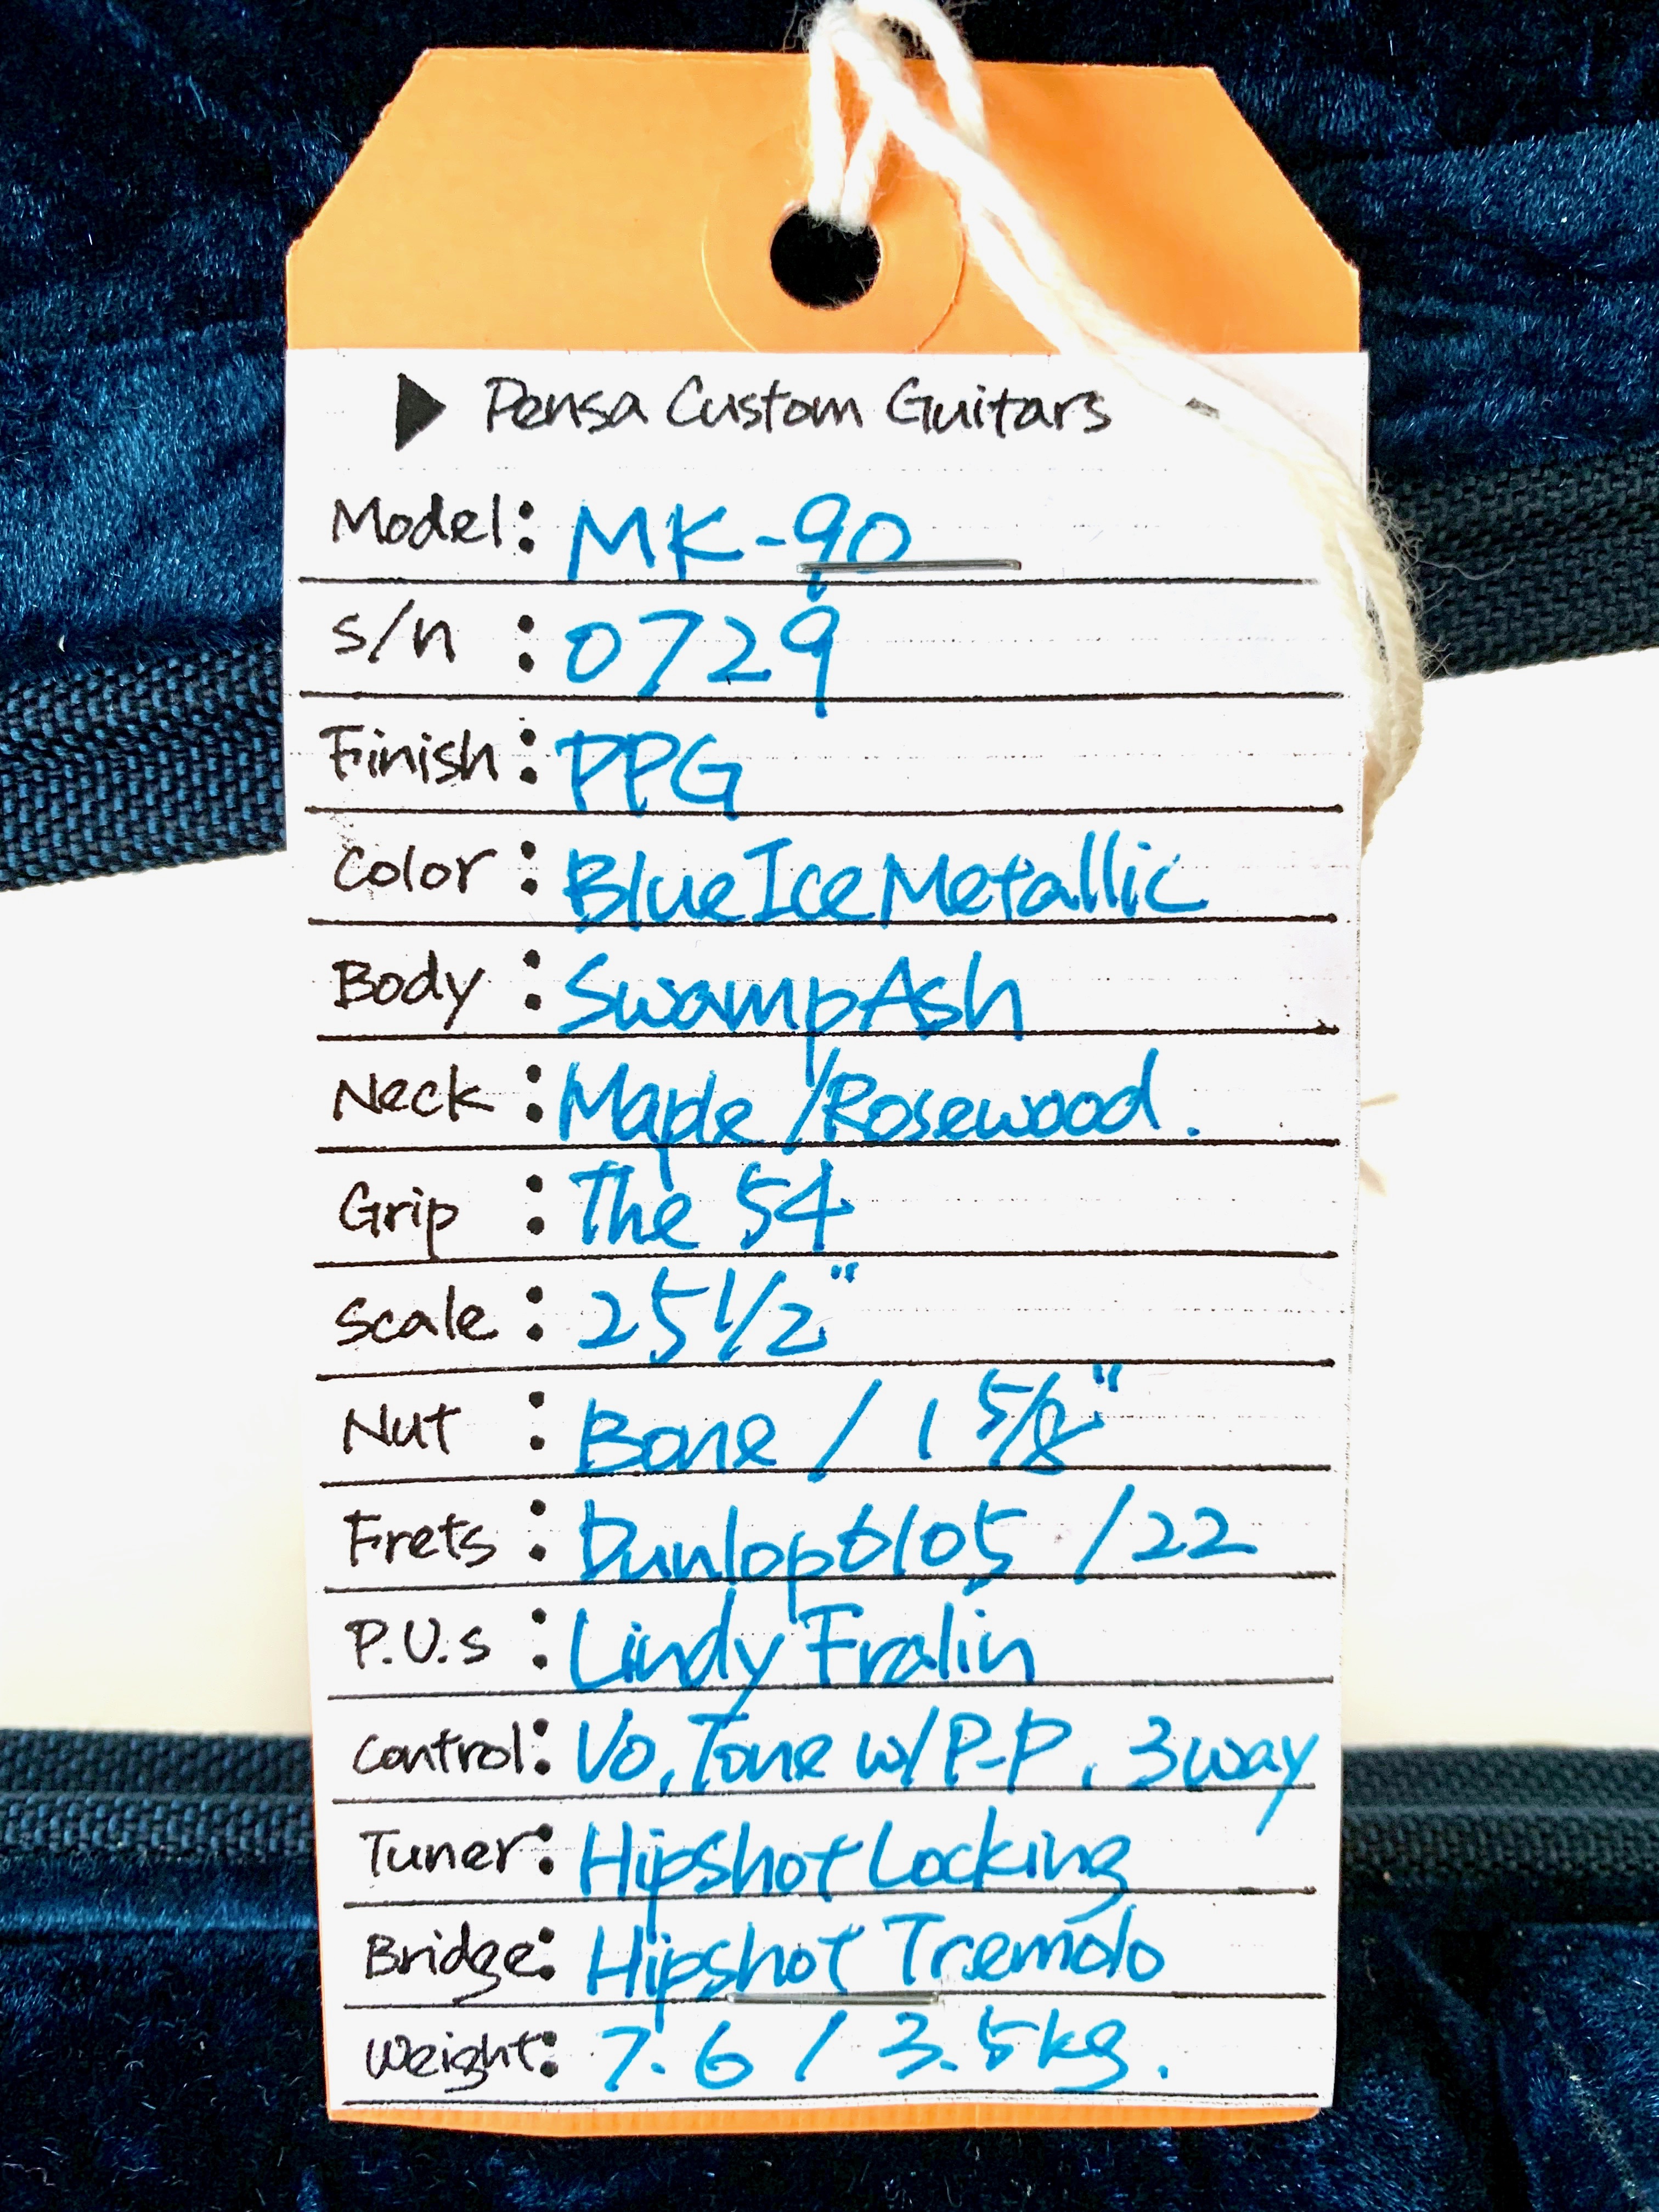 ▶ Pensa Custom Guitars
Model: MK-90
s/n : 0729
Finish: PPG
Color : Blue Ice Metallic
Body : Swamp Ash
Neck : Maple / Rosewood.
Grip : The 54
Scale : 25 1/2"
Nut : Bone / 1 5/8"
Frets : Dunlop 6105 / 22
P.U.s : Lindy Fralin
Control: Vo, Tone w/ P-P, 3 way
Tuner: Hipshot Locking
Bridge: Hipshot Tremolo
Weight: 7.6 / 3.5kg.